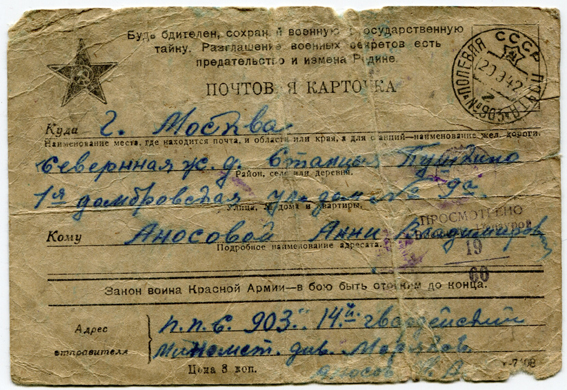 Будь бдителен, сохраняй военную и государственную
тайну. Разглашение военных секретов есть
предательство и измена Родине.
ПОЧТОВАЯ КАРТОЧКА
СССР
ПОЛЕВАЯ ПОЧТА
№ 903
Куда г. Москва
Наименование места, где находится почта, и области или края, а для станций—наименование жел. дороги.
Севернная ж. д. Станция Пушкино
Район, село или деревня.
1я домбровская дом №
Улица, № дома и квартиры.
ПРОСМОТРЕНО
Кому Аносовой Анни Владимировн
Подробное наименование адресата.
19
60
Закон воина Красной Армии—в бою быть стойким до конца.
Адрес
отправителя
п.п.с. 903. 14й гвардейский
миномет. див. Моряков
Аносов
Цена 3 коп.